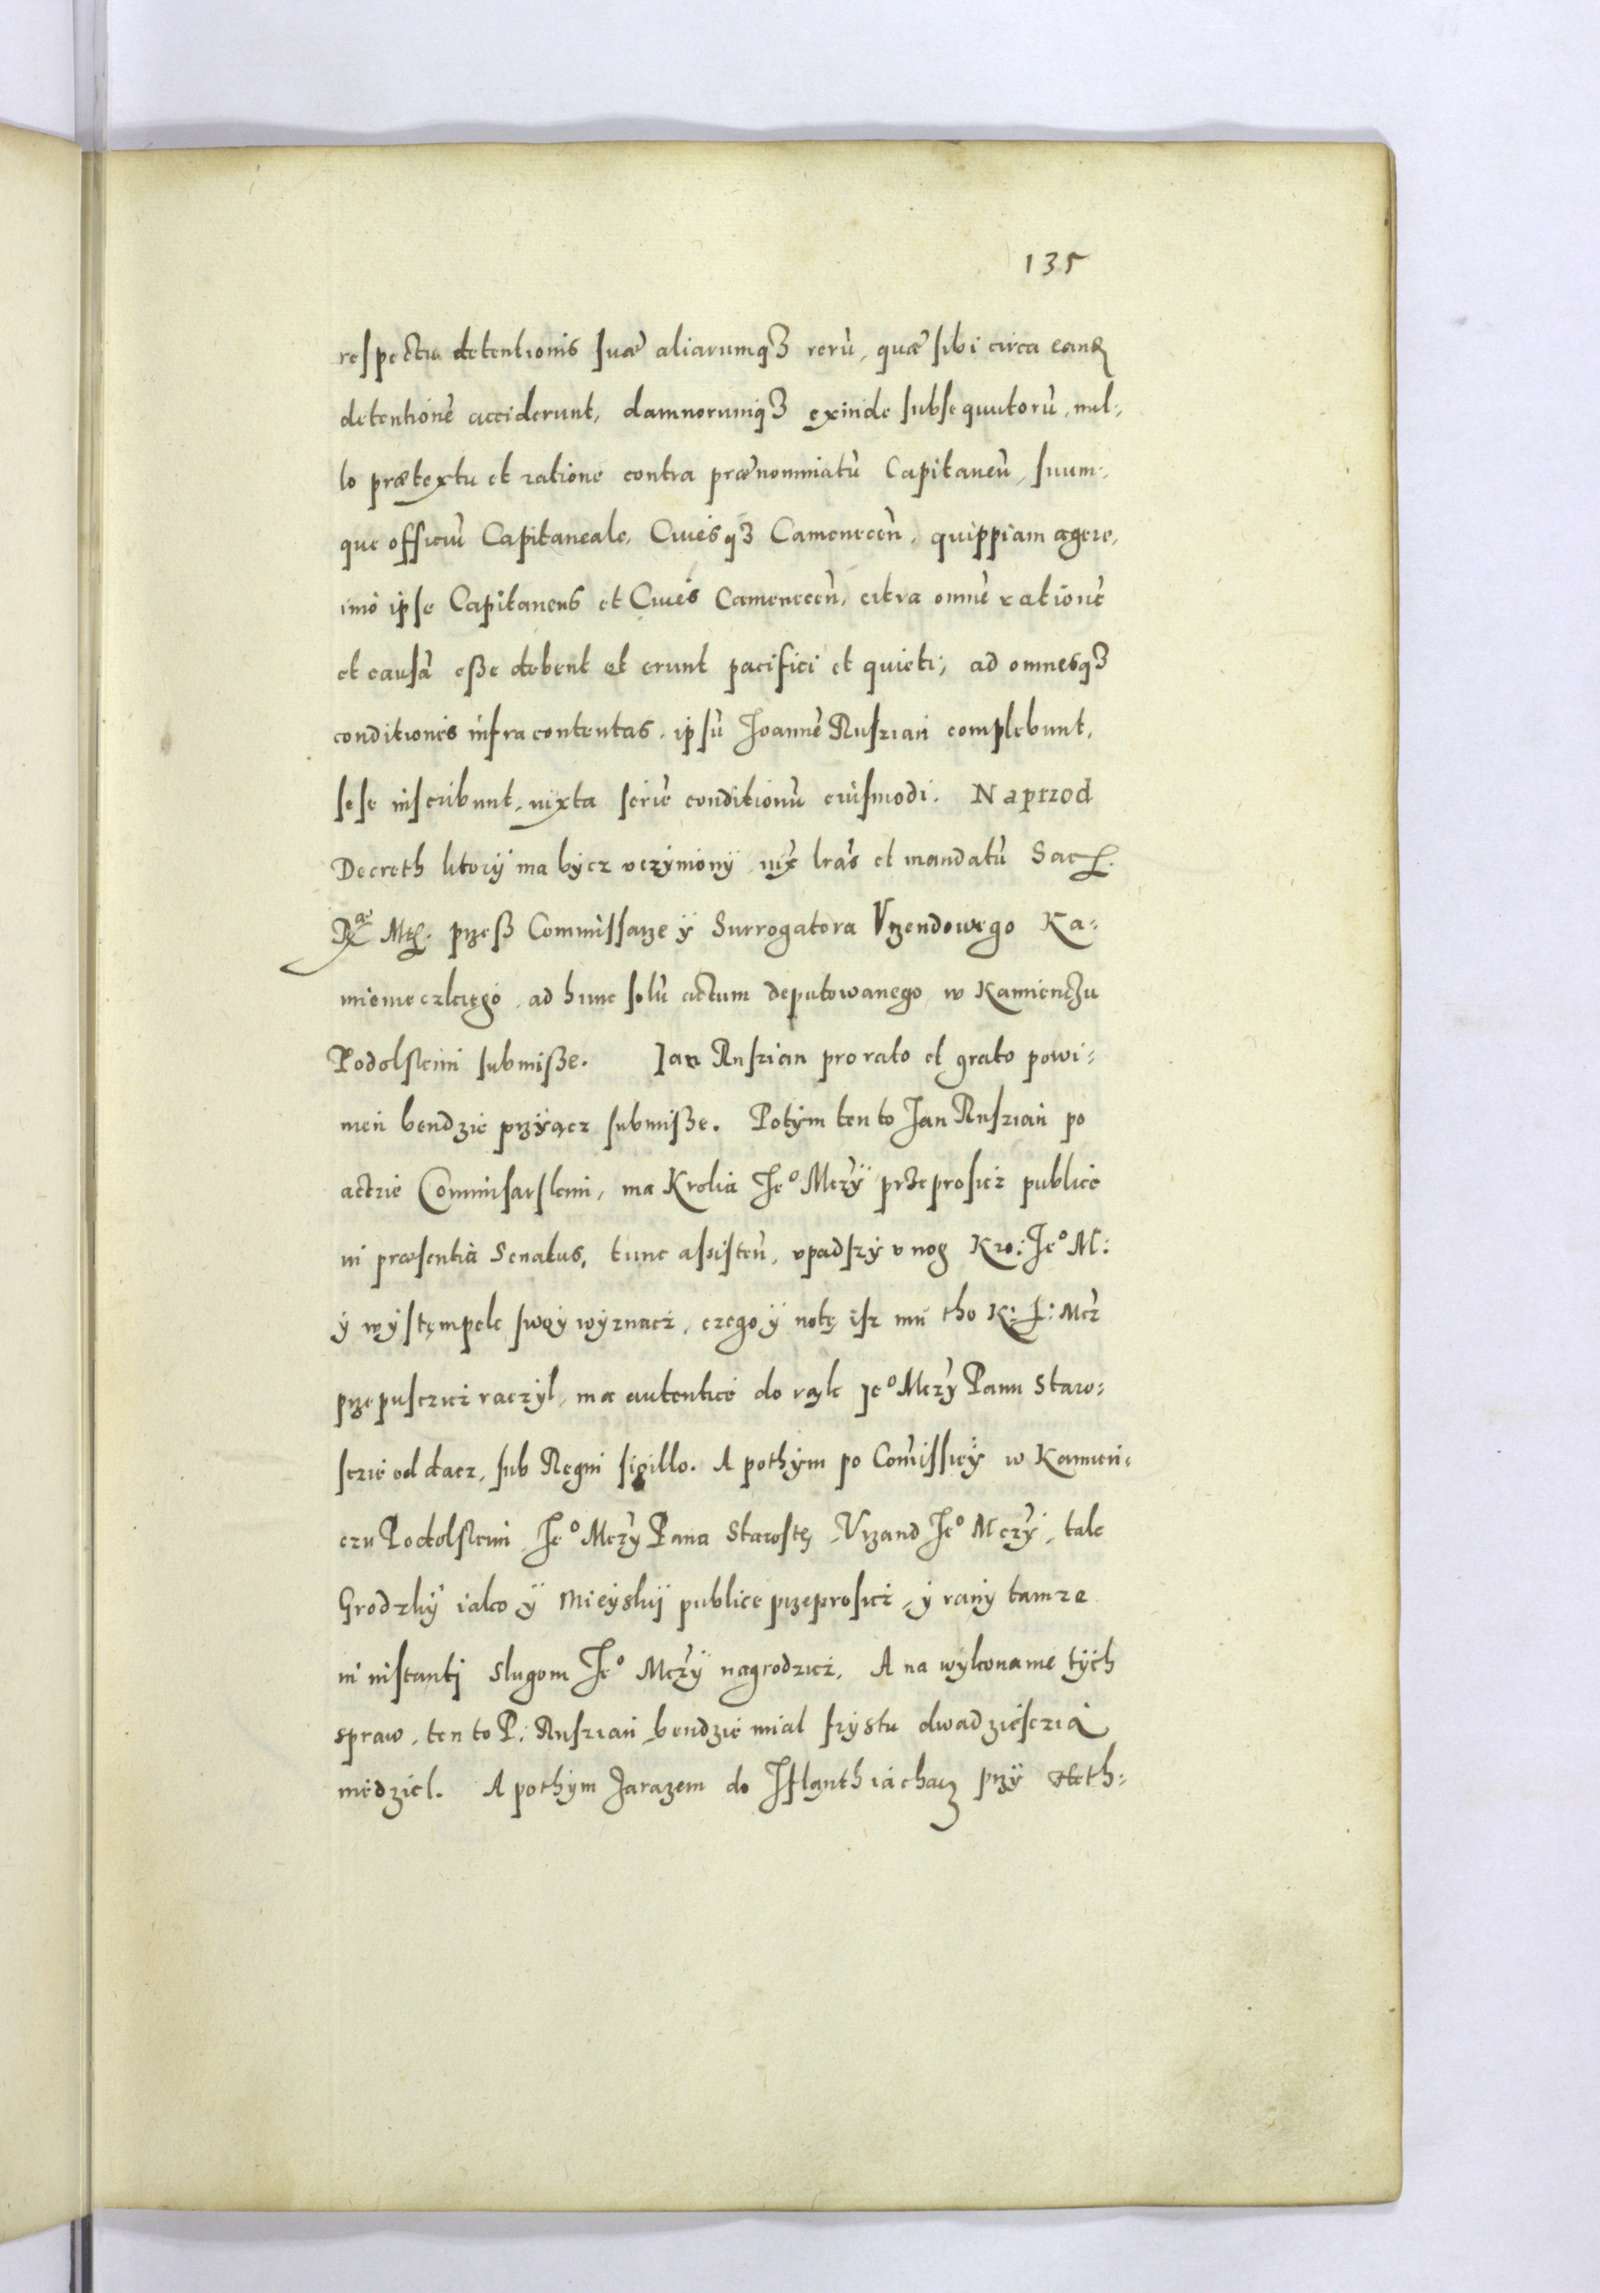 135
respectu detentionis suæ aliarumq3 rerū, quæ sibi circa eand
detentionē acciderunt, damnorumq3 exinde subsequutorū, nul-
lo prætextu et ratione contra prænominatū Capitaneū, suum-
que officiū Capitaneale, Ciuesq3 Camenecen̄, quippiam agere,
imò ipse Capitaneus et Ciues Camenecen̄, citra omnē rationē
et causā esse debent et erunt pacifici et quieti; ad omnesq3
conditiones infra contentas, ipsū Joannē Russian complebunt,
sese inscribunt, iuxta seriē conditionū eiusmodi. Naprzod
Decreth ktory ma bycz vczyniony, iux̄ lrās et mandatū Sac:
Ræ Mtt: przeß Commissarze y Surrogatora Vrzendowego Ka-
mienieczkiego, ad hunc solū actum deputowanego, w Kamienczu
Podolskim submisse. Jan Russian pro rato et grato powi-
nien bendzie przyącz submisse. Potym ten to Jan Russian po
actzie Commisarskim, ma Krolia Jeº Mczy przeprosicz publice
in præsentia Senatus, tunc assisten̄, vpadszy v nog Kro: Jeº M:
y wystęmpek swoy wyznacz, czego y notę isz mu tho K: J: Mcz
przepusczicz raczyl, ma autentice do rąk Jeº Mczy Panu Staro-
sczie oddacz, sub Regni sigillo. A pothym po Com̄issiey w Kamien-
czu Podolskim Jeº Mczy Pana Starostę, Vrzand Jeº Mczy, tak
Grodzky iako y Mieysky publice przeprosicz, y rany tamze
in instanti slugom Jeº Mczy nagrodzicz. A na wykonanie tych
spraw, ten to P: Russian bendzie mial frystu dwadziesczia
niedziel. A pothym zarazem do Iflanth iachacz przy Heth-